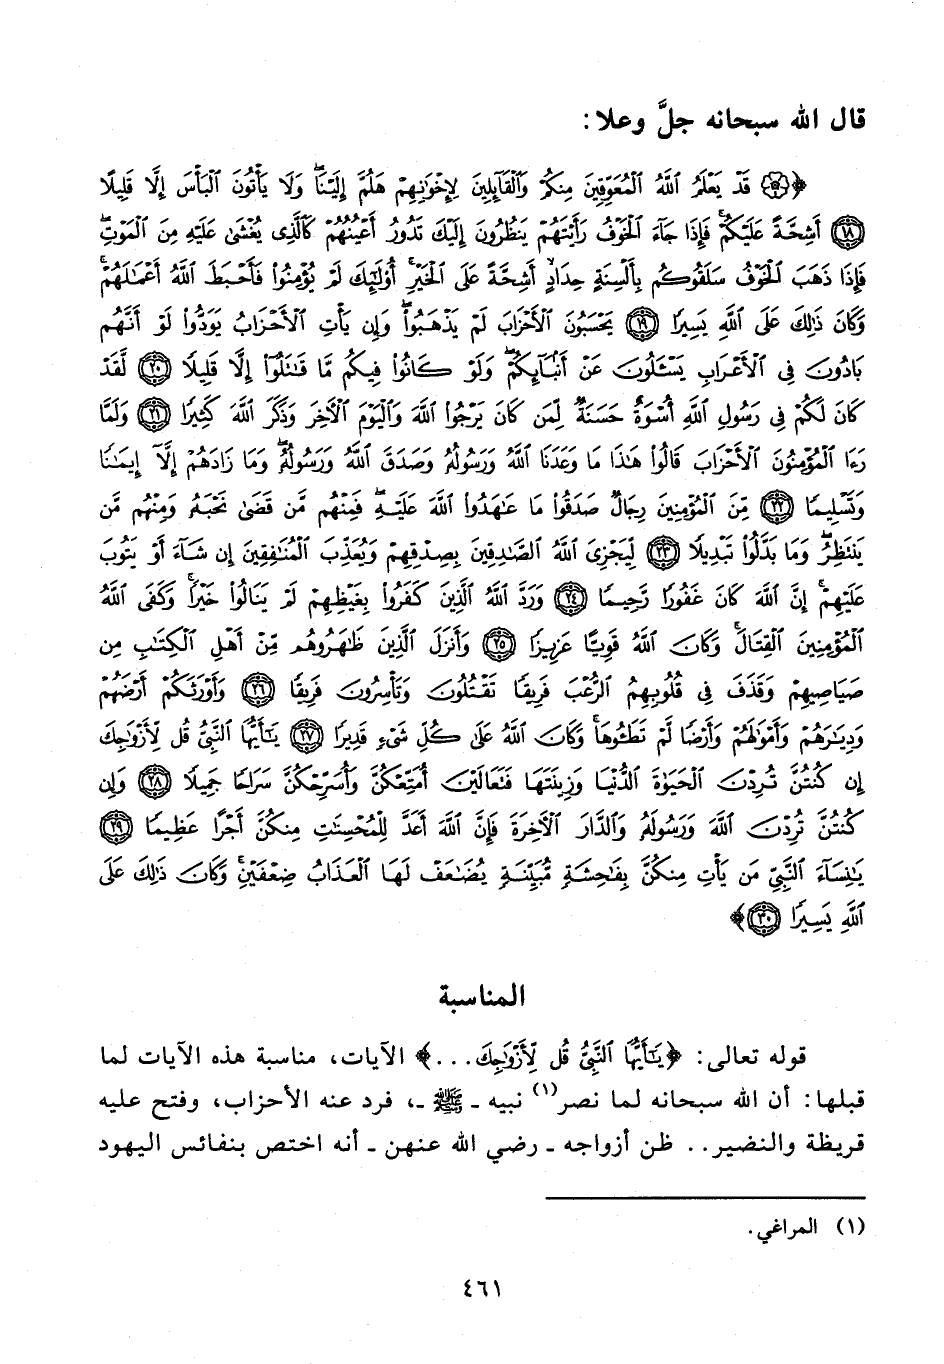 قال الله سبحانه جلَّ وعلا:
﴿۞ قَدْ يَعْلَمُ اللَّهُ الْمُعَوِّقِينَ مِنكُمْ وَالْقَائِلِينَ لِإِخْوَانِهِمْ هَلُمَّ إِلَيْنَا وَلَا يَأْتُونَ الْبَأْسَ إِلَّا قَلِيلًا
(١٨) أَشِحَّةً عَلَيْكُمْ فَإِذَا جَاءَ الْخَوْفُ رَأَيْتَهُمْ يَنظُرُونَ إِلَيْكَ تَدُورُ أَعْيُنُهُمْ كَالَّذِي يُغْشَىٰ عَلَيْهِ مِنَ الْمَوْتِ
فَإِذَا ذَهَبَ الْخَوْفُ سَلَقُوكُم بِأَلْسِنَةٍ حِدَادٍ أَشِحَّةً عَلَى الْخَيْرِ أُولَٰئِكَ لَمْ يُؤْمِنُوا فَأَحْبَطَ اللَّهُ أَعْمَالَهُمْ
وَكَانَ ذَٰلِكَ عَلَى اللَّهِ يَسِيرًا (١٩) يَحْسَبُونَ الْأَحْزَابَ لَمْ يَذْهَبُوا وَإِن يَأْتِ الْأَحْزَابُ يَوَدُّوا لَوْ أَنَّهُم
بَادُونَ فِي الْأَعْرَابِ يَسْأَلُونَ عَنْ أَنبَائِكُمْ وَلَوْ كَانُوا فِيكُم مَّا قَاتَلُوا إِلَّا قَلِيلًا (٢٠) لَّقَدْ
كَانَ لَكُمْ فِي رَسُولِ اللَّهِ أُسْوَةٌ حَسَنَةٌ لِّمَن كَانَ يَرْجُوا اللَّهَ وَالْيَوْمَ الْآخِرَ وَذَكَرَ اللَّهَ كَثِيرًا (٢١) وَلَمَّا
رَءَا الْمُؤْمِنُونَ الْأَحْزَابَ قَالُوا هَٰذَا مَا وَعَدَنَا اللَّهُ وَرَسُولُهُ وَصَدَقَ اللَّهُ وَرَسُولُهُ وَمَا زَادَهُمْ إِلَّا إِيمَانًا
وَتَسْلِيمًا (٢٢) مِّنَ الْمُؤْمِنِينَ رِجَالٌ صَدَقُوا مَا عَاهَدُوا اللَّهَ عَلَيْهِ فَمِنْهُم مَّن قَضَىٰ نَحْبَهُ وَمِنْهُم مَّن
يَنتَظِرُ وَمَا بَدَّلُوا تَبْدِيلًا (٢٣) لِّيَجْزِيَ اللَّهُ الصَّادِقِينَ بِصِدْقِهِمْ وَيُعَذِّبَ الْمُنَافِقِينَ إِن شَاءَ أَوْ يَتُوبَ
عَلَيْهِمْ إِنَّ اللَّهَ كَانَ غَفُورًا رَّحِيمًا (٢٤) وَرَدَّ اللَّهُ الَّذِينَ كَفَرُوا بِغَيْظِهِمْ لَمْ يَنَالُوا خَيْرًا وَكَفَى اللَّهُ
الْمُؤْمِنِينَ الْقِتَالَ وَكَانَ اللَّهُ قَوِيًّا عَزِيزًا (٢٥) وَأَنزَلَ الَّذِينَ ظَاهَرُوهُم مِّنْ أَهْلِ الْكِتَابِ مِن
صَيَاصِيهِمْ وَقَذَفَ فِي قُلُوبِهِمُ الرُّعْبَ فَرِيقًا تَقْتُلُونَ وَتَأْسِرُونَ فَرِيقًا (٢٦) وَأَوْرَثَكُمْ أَرْضَهُمْ
وَدِيَارَهُمْ وَأَمْوَالَهُمْ وَأَرْضًا لَّمْ تَطَئُوهَا وَكَانَ اللَّهُ عَلَىٰ كُلِّ شَيْءٍ قَدِيرًا (٢٧) يَا أَيُّهَا النَّبِيُّ قُل لِّأَزْوَاجِكَ
إِن كُنتُنَّ تُرِدْنَ الْحَيَاةَ الدُّنْيَا وَزِينَتَهَا فَتَعَالَيْنَ أُمَتِّعْكُنَّ وَأُسَرِّحْكُنَّ سَرَاحًا جَمِيلًا (٢٨) وَإِن
كُنتُنَّ تُرِدْنَ اللَّهَ وَرَسُولَهُ وَالدَّارَ الْآخِرَةَ فَإِنَّ اللَّهَ أَعَدَّ لِلْمُحْسِنَاتِ مِنكُنَّ أَجْرًا عَظِيمًا (٢٩)
يَا نِسَاءَ النَّبِيِّ مَن يَأْتِ مِنكُنَّ بِفَاحِشَةٍ مُّبَيِّنَةٍ يُضَاعَفْ لَهَا الْعَذَابُ ضِعْفَيْنِ وَكَانَ ذَٰلِكَ عَلَى
اللَّهِ يَسِيرًا (٣٠)﴾
المناسبة
قوله تعالى: ﴿يَا أَيُّهَا النَّبِيُّ قُل لِّأَزْوَاجِكَ...﴾ الآيات، مناسبة هذه الآيات لما
قبلها: أن الله سبحانه لما نصر(١) نبيه ـ ﷺ ـ، فرد عنه الأحزاب، وفتح عليه
قريظة والنضير.. ظن أزواجه ـ رضي الله عنهن ـ أنه اختص بنفائس اليهود
(١) المراغي.
٤٦١